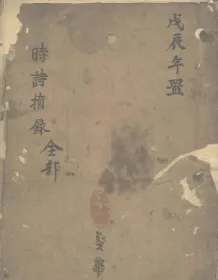 戊辰年置
時詩摘錄全部